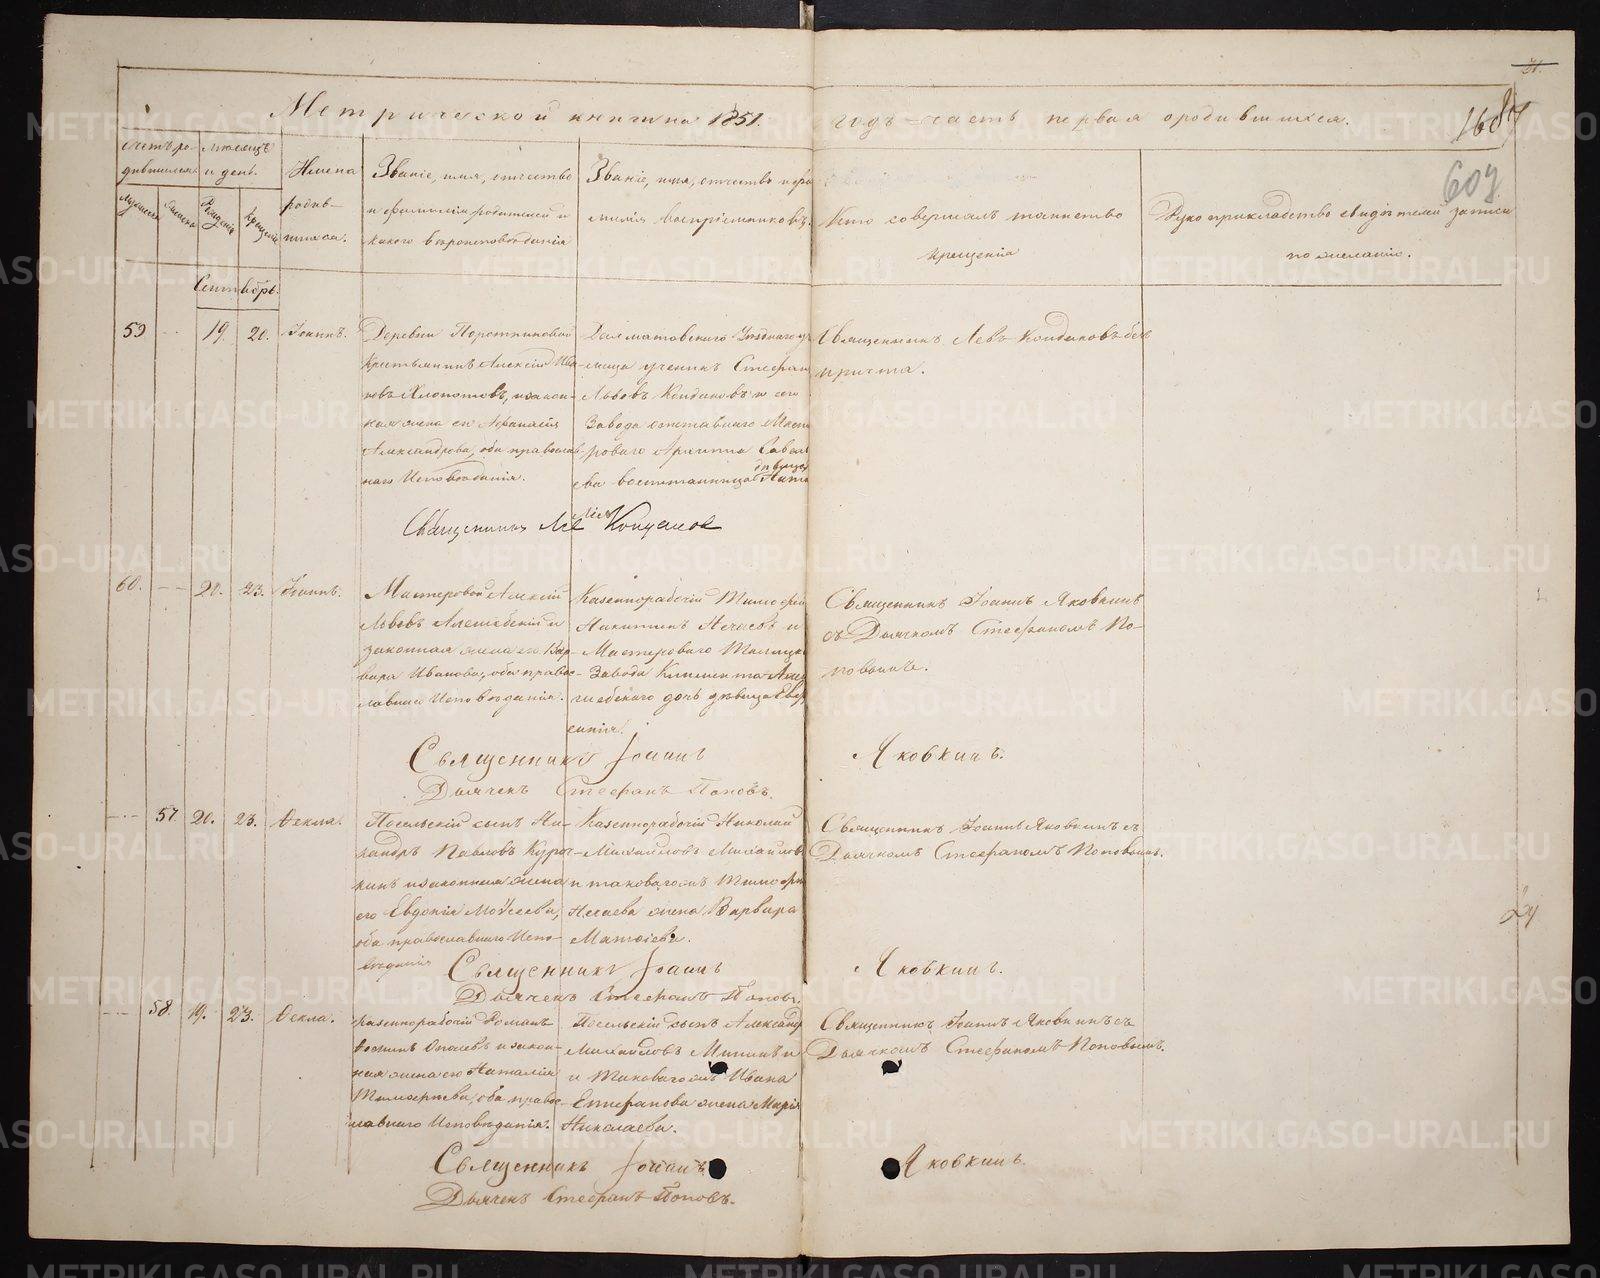 Метрической книги на 1851. годъ часть первая о родившихся.
1687
607
Счетъ ро-
дившихся
Мѣсяцъ
и день.
Имена
родив-
шихся.
Званіе, имя, отчество
и фамилія родителей и
какого вѣроисповѣданія
Званіе, имя, отчество и фа
милія воспріемниковъ.
Кто совершалъ таинство
крещенія
Рукоприкладство свидѣтелей записи
по желанію.
Сентябрь.
59 19. 20. Іоаннъ.
Деревни
Крестьянинъ Алексій Ива
новъ и закон-
ная жена его
Александрова, оба православ-
наго Исповѣданія.
Далматовскаго Уѣзднаго у
лища ученикъ Стефан
Львовъ Кондаковъ и сего
Завода отставнаго Масте
роваго Архиппа Савель
ева воспитанница дѣвица
Священникъ Левъ Кондаковъ безъ
причта.
Священникъ Лев Кондаков
60. 20. 23. Іоаннъ.
Мастеровой Алексій
Львовъ и
законная жена его Вар-
вара Иванова, оба правос-
лавнаго Исповѣданія.
Казеннорабочій Тимофей
Никитинъ Нечаевъ и
Мастероваго
Завода Климента
дочь дѣвица Евге
Священникъ Іоаннъ Яковкинъ
съ Дьячкомъ Стефаномъ По-
повымъ.
Священникъ Іоаннъ Яковкинъ.
Дьячекъ Стефанъ Поповъ.
57. 20. 23. Ѳекла.
Посельскій сынъ Ни-
кандръ Павловъ
и законная жена
его Евдокія Моѵсеева,
оба православнаго Испо-
вѣданія
Казеннорабочій Николай
Михайловъ
и таковагожъ Тимофея
Нечаева жена Варвара
Матѳіева.
Священникъ Іоаннъ Яковкинъ съ
Дьячкомъ Стефаномъ Поповымъ.
Священникъ Іоаннъ Яковкинъ.
Дьячекъ Стефанъ Поповъ.
58. 19. 23. Ѳекла.
Казеннорабочій Романъ
и закон-
ная жена его Наталія
Тимофеева, оба правос-
лавнаго Исповѣданія.
Посельскій сынъ Александ
Михайловъ
и Таковагожъ Ивана
Епифанова жена Марія
Николаева.
Священникъ Іоаннъ Яковкинъ съ
Дьячкомъ Стефаномъ Поповымъ.
Священникъ Іоаннъ Яковкинъ.
Дьячекъ Стефанъ Поповъ.
METRIKI.GASO-URAL.RU